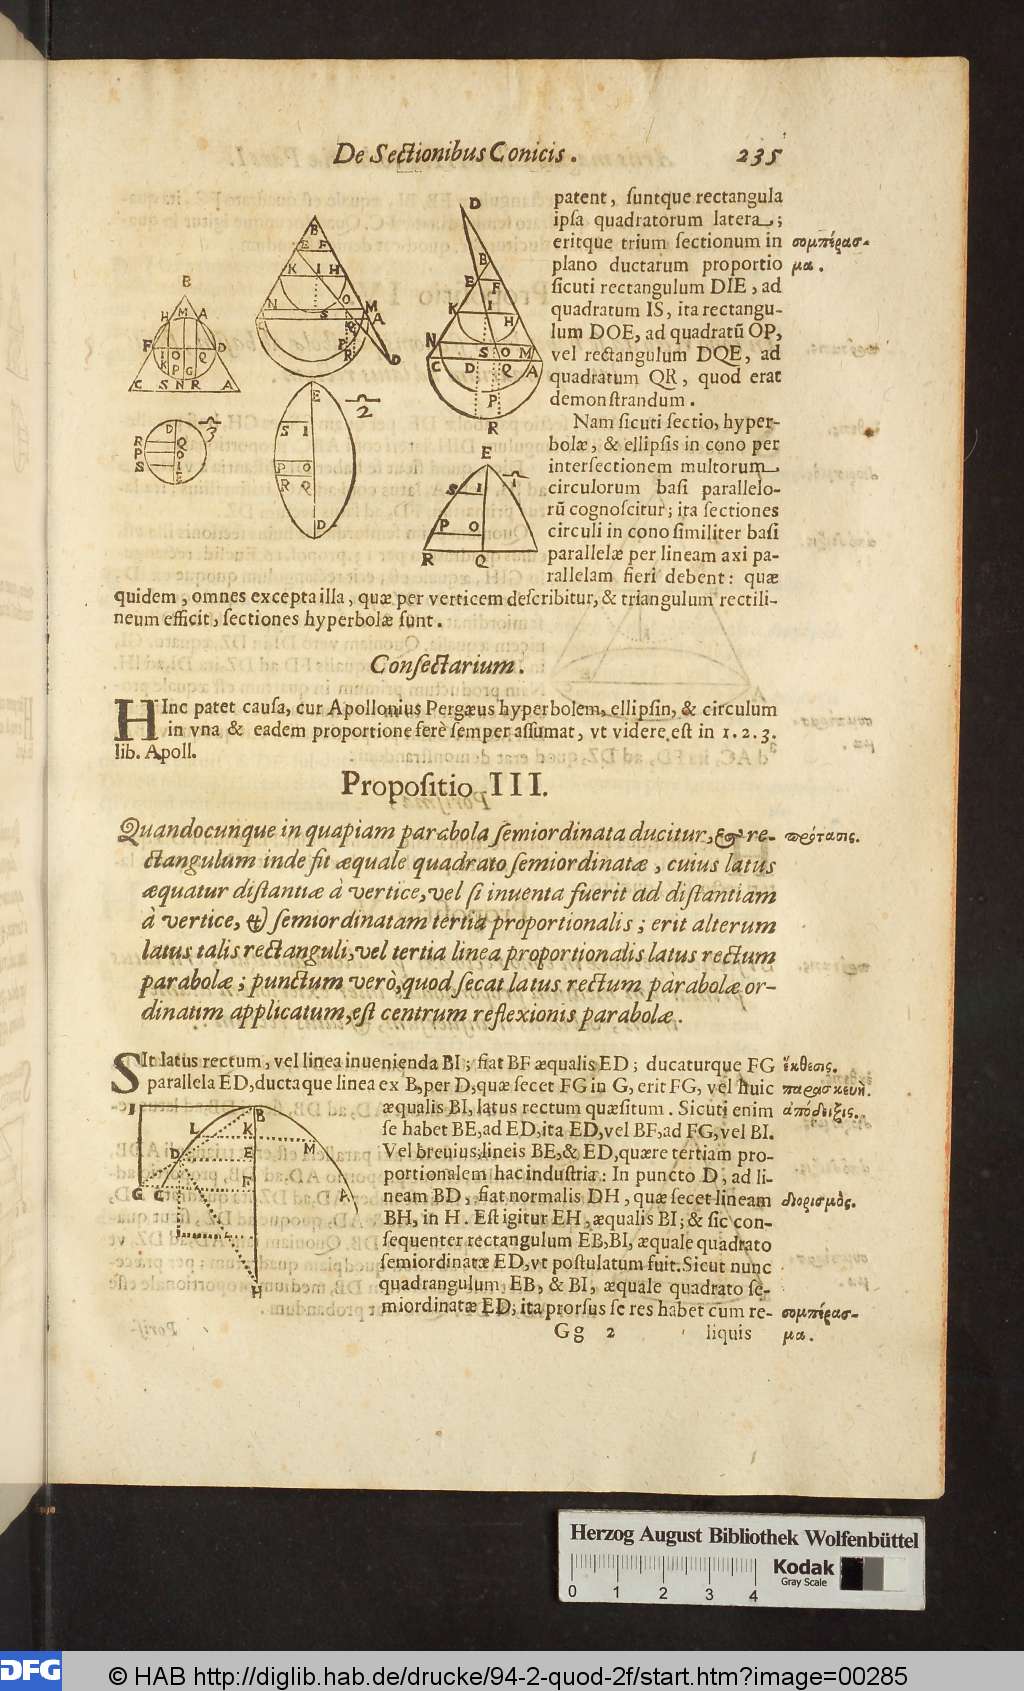 De Sectionibus Conicis. 235
patent, suntque rectangula
ipsa quadratorum latera;
eritque trium sectionum in
plano ductarum proportio
sicuti rectangulum DIE, ad
quadratum IS, ita rectangu-
lum DOE, ad quadratũ OP,
vel rectangulum DQE, ad
quadratum QR, quod erat
demonstrandum.
συμπέρασ-
μα.
Nam sicuti sectio, hyper-
bolæ, & ellipsis in cono per
intersectionem multorum
circulorum basi parallelo-
rũ cognoscitur; ita sectiones
circuli in cono similiter basi
parallelæ per lineam axi pa-
rallelam fieri debent: quæ
quidem, omnes excepta illa, quæ per verticem describitur, & triangulum rectili-
neum efficit, sectiones hyperbolæ sunt.
Consectarium.
HInc patet causa, cur Apollonius Pergæus hyperbolem, ellipsin, & circulum
in vna & eadem proportione ferè semper assumat, vt videre est in 1. 2. 3.
lib. Apoll.
Propositio III.
Quandocunque in quapiam parabola semiordinata ducitur, & re-
πρότασις.
ctangulum inde fit æquale quadrato semiordinatæ, cuius latus
æquatur distantiæ à vertice, vel si inuenta fuerit ad distantiam
à vertice, & semiordinatam tertia proportionalis; erit alterum
latus talis rectanguli, vel tertia linea proportionalis latus rectum
parabolæ; punctum verò, quod secat latus rectum parabolæ or-
dinatim applicatum, est centrum reflexionis parabolæ.
SIt latus rectum, vel linea inuenienda BI; fiat BF æqualis ED; ducaturque FG
ἔκθεσις.
parallela ED, ductaque linea ex B, per D, quæ secet FG in G, erit FG, vel huic
παρασκευή.
æqualis BI, latus rectum quæsitum. Sicuti enim
ἀπόδειξις.
se habet BE, ad ED, ita ED, vel BF, ad FG, vel BI.
Vel breuius, lineis BE, & ED, quære tertiam pro-
portionalem hac industria: In puncto D, ad li-
neam BD, fiat normalis DH, quæ secet lineam
διορισμός.
BH, in H. Est igitur EH, æqualis BI; & sic con-
sequenter rectangulum EB, BI, æquale quadrato
semiordinatæ ED, vt postulatum fuit. Sicut nunc
quadrangulum EB, & BI, æquale quadrato se-
miordinatæ ED; ita prorsus se res habet cum re-
συμπέρασ-
μα.
Gg 2 liquis
B
H M A
F D
I O Q
K P G
C S N R A
B
E F
K I H
N O M
S A
C Q
P
R D
D
B
E F
K I
H
N S O M
C D Q A
P
R
D
R Q
P O
S I
E
3
E
S I
P O
R Q
D
2
E
S I
P O
R Q
1
I B
L K M
D E
G C F A
H
Herzog August Bibliothek Wolfenbüttel
Kodak
Gray Scale
0 1 2 3 4
DFG
© HAB http://diglib.hab.de/drucke/94-2-quod-2f/start.htm?image=00285